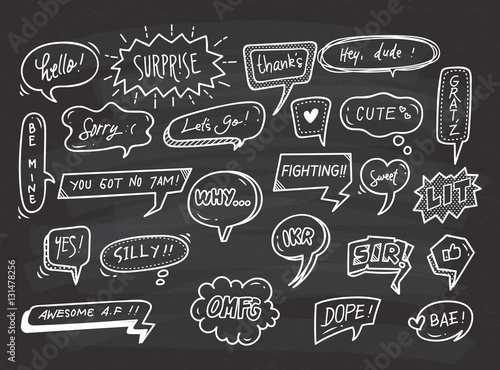 hello!
SURPRISE
thank's
Hey, dude !
GRATZ
BE MINE
Sorry :(
Let's Go!
CUTE
YOU GOT NO JAM!
FIGHTING!!
Sweet
LIT
WHY...
YES!
SILLY!!
IKR
SIR!
AWESOME A.F !!
OMFG
DOPE!
BAE!
Adobe Stock
131478256